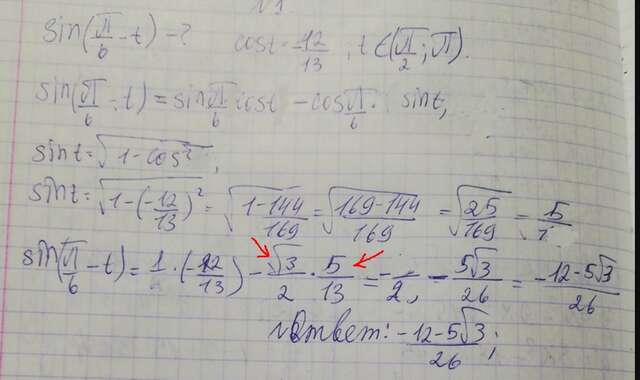 N1.
sin(π/6 - t) - ? cost = -12/13, t ∈ (π/2; π).
sin(π/6 - t) = sin π/6 cost - cos π/6 · sint;
sint = √(1 - cos²);
sint = √(1 - (-12/13)²) = √(1 - 144/169) = √((169 - 144)/169) = √(25/169) = 5/
sin(π/6 - t) = 1 · (-12/13) - √3/2 · 5/13 = - /2, - 5√3/26 = (-12 - 5√3)/26
Ответ: (-12 - 5√3)/26;